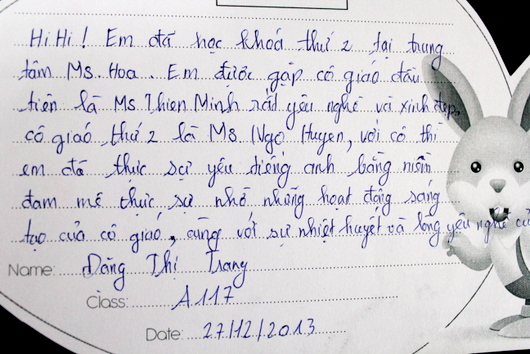 Hi Hi! Em đã học khoá thứ 2 tại trung
tâm Ms. Hoa. Em được gặp cô giáo đầu
tiên là Ms. Thien Minh rất yêu nghề và xinh đẹp,
cô giáo thứ 2 là Ms. Ngọ Huyen, với cô thì
em đã thực sự yêu tiếng anh bằng niềm
đam mê thực sự nhờ những hoạt động sáng
tạo của cô giáo, cùng với sự nhiệt huyết và lòng yêu nghề củ
Name: Đặng Thị Trang
Class: A117
Date: 27/12/2013